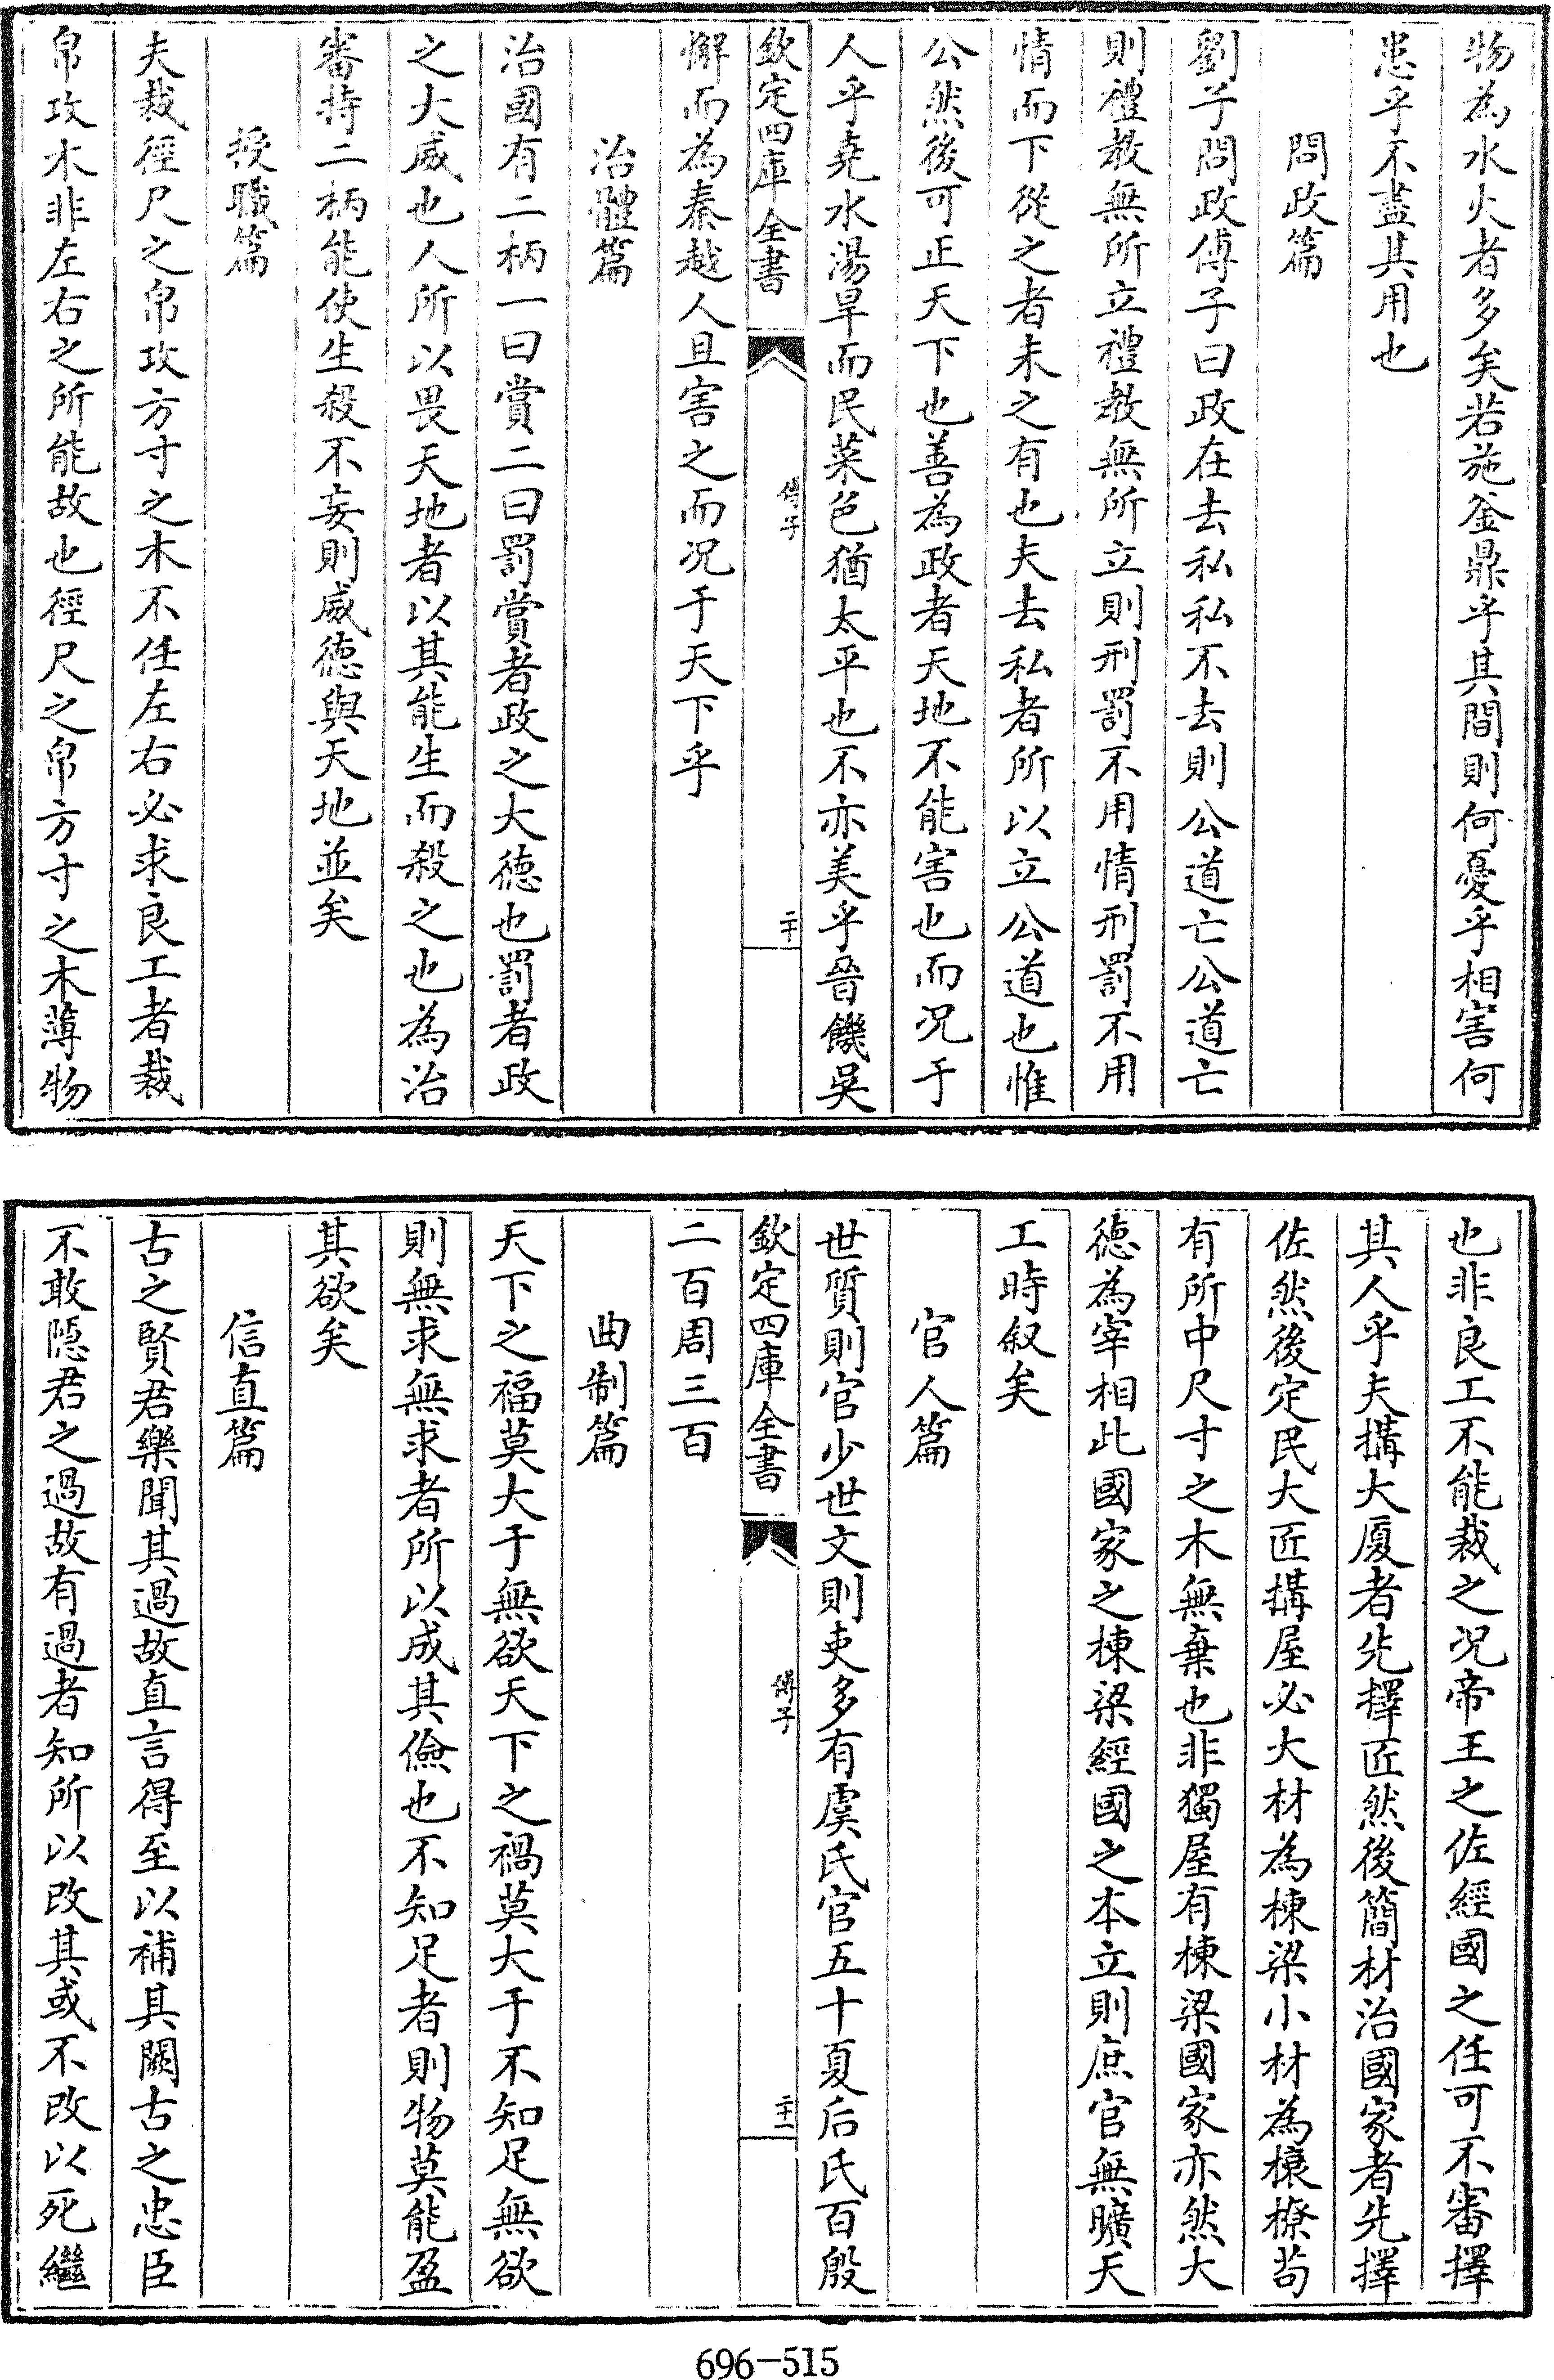 物為水火者多矣若施釜鼎乎其間則何憂乎相害何
患乎不盡其用也
問政篇
劉子問政傅子曰政在去私私不去則公道亡公道亡
則禮教無所立禮教無所立則刑罰不用情刑罰不用
情而下從之者未之有也夫去私者所以立公道也惟
公然後可正天下也善為政者天地不能害也而况于
人乎堯水湯旱而民菜色猶太平也不亦美乎晉饑吳
欽定四庫全書
傅子
二十
懈而為秦越人且害之而况于天下乎
治體篇
治國有二柄一曰賞二曰罰賞者政之大徳也罰者政
之大威也人所以畏天地者以其能生而殺之也為治
審持二柄能使生殺不妄則威徳與天地並矣
授職篇
夫裁徑尺之帛攻方寸之木不任左右必求良工者裁
帛攻木非左右之所能故也徑尺之帛方寸之木薄物
也非良工不能裁之况帝王之佐經國之任可不審擇
其人乎夫搆大厦者先擇匠然後簡材治國家者先擇
佐然後定民大匠搆屋必大材為棟梁小材為榱橑茍
有所中尺寸之木無棄也非獨屋有棟梁國家亦然大
徳為宰相此國家之棟梁經國之本立則庶官無曠天
工時叙矣
官人篇
世質則官少世文則吏多有虞氏官五十夏后氏百殷
欽定四庫全書
傅子
二十一
二百周三百
曲制篇
天下之福莫大于無欲天下之禍莫大于不知足無欲
則無求無求者所以成其儉也不知足者則物莫能盈
其欲矣
信直篇
古之賢君樂聞其過故直言得至以補其闕古之忠臣
不敢隠君之過故有過者知所以改其或不改以死繼
696-515